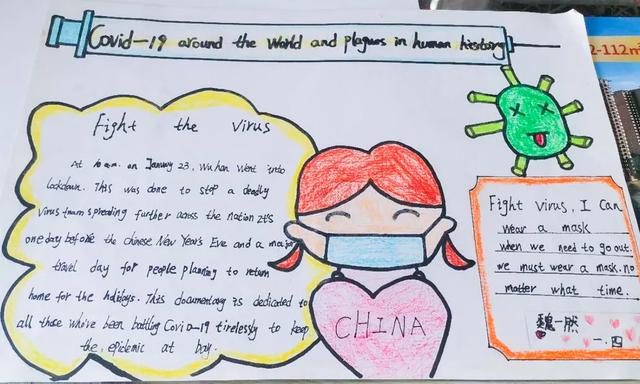 Covid-19 around the World and plagues in human history
Fight the virus
At 10 a.m. on January 23, Wuhan went into
lockdown. This was done to stop a deadly
virus from spreading further across the nation It's
one day before the Chinese New Year's Eve and a major
travel day for people planning to return
home for the holidays. This documentary is dedicated to
all those who've been battling Covid-19 tirelessly to keep
the epidemic at bay.
CHINA
Fight virus, I Can
wear a mask
when we need to go out.
we must wear a mask. no
matter what time.
魏一朕
一.四
2-112㎡